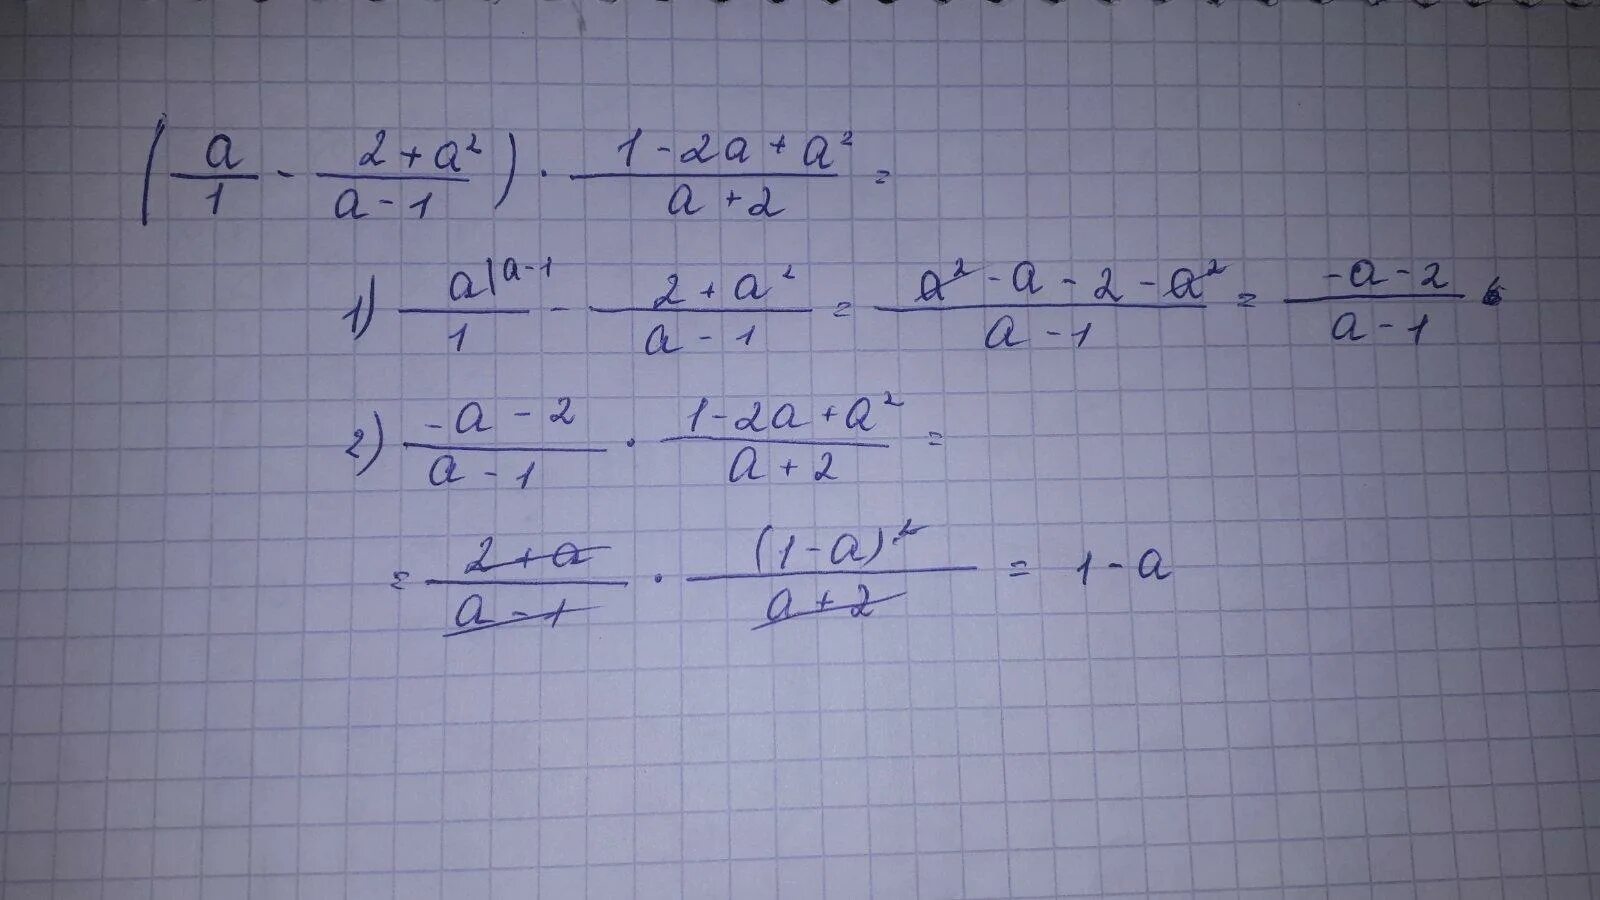 (a/1 - 2+a²/a-1) · 1-2a+a²/a+2 =
1) a|a-1/1 - 2+a²/a-1 = a²-a-2-a²/a-1 = -a-2/a-1
2) -a-2/a-1 · 1-2a+a²/a+2 =
= 2+a/a-1 · (1-a)²/a+2 = 1-a